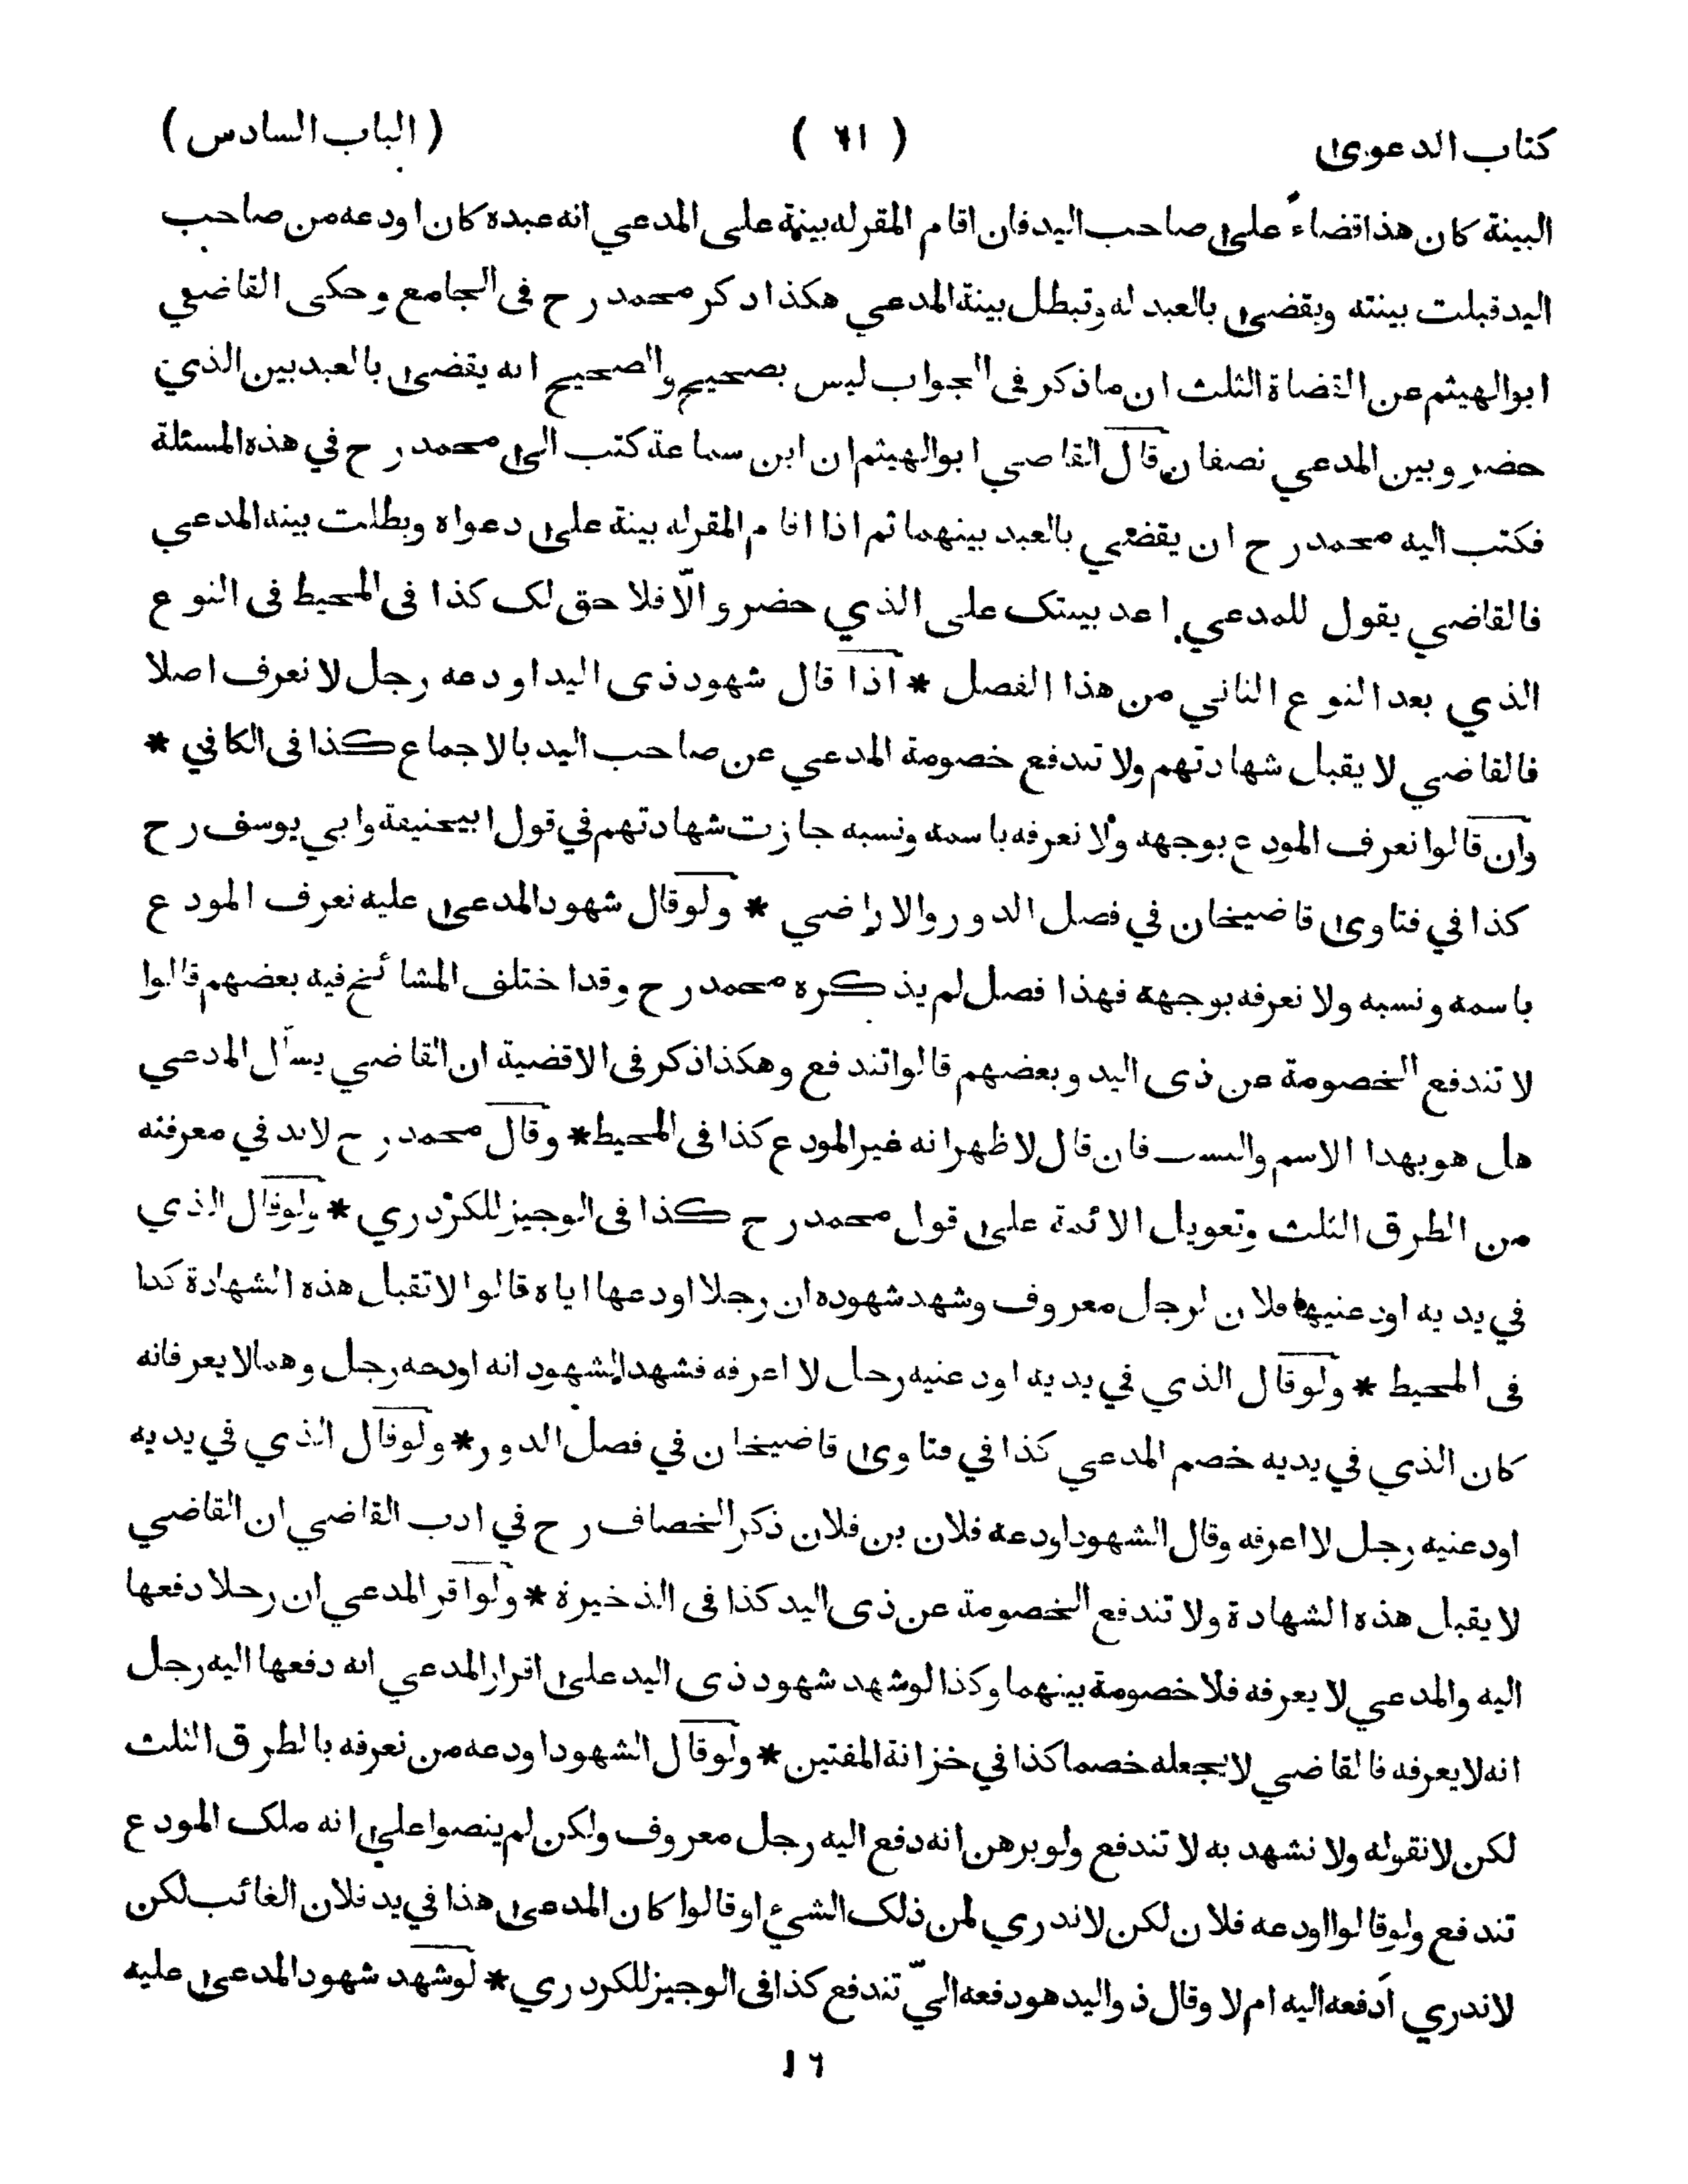 كتاب الدعوى ( ٦١ ) ( الباب السادس )
البينة كان هذا قضاءً على صاحب اليد فان اقام المقر له بينة على المدعي انه عبده كان اودعه من صاحب
اليد قبلت بينته ويقضى بالعبد له وتبطل بينة المدعي هكذا ذكر محمد رح فى الجامع وحكى القاضي
ابوالهيثم عن القضاة الثلث ان ماذكر فى الجواب ليس بصحيح والصحيح انه يقضى بالعبد بين الذي
حضر وبين المدعي نصفان قال القاضي ابوالهيثم ان ابن سماعة كتب الى محمد رح في هذه المسئلة
فكتب اليه محمد رح ان يقضي بالعبد بينهما ثم اذا اقام المقر له بينة على دعواه وبطلت بينة المدعي
فالقاضي يقول للمدعي اعد بينتك على الذي حضر والّا فلا حق لك كذا فى المحيط فى النوع
الذي بعد النوع الثاني من هذا الفصل * اذا قال شهود ذى اليد اودعه رجل لا نعرف اصلا
فالقاضي لا يقبل شهادتهم ولا تندفع خصومة المدعي عن صاحب اليد بالاجماع كذا فى الكافي *
وان قالوا نعرف المودع بوجهه ولا نعرفه باسمه ونسبه جازت شهادتهم في قول ابيحنيفة وابي يوسف رح
كذا في فتاوى قاضيخان في فصل الدور والاراضي * ولو قال شهود المدعى عليه نعرف المودع
باسمه ونسبه ولا نعرفه بوجهه فهذا فصل لم يذكره محمد رح وقد اختلف المشائخ فيه بعضهم قالوا
لا تندفع الخصومة عن ذى اليد وبعضهم قالوا تندفع وهكذا ذكر فى الاقضية ان القاضي يسأل المدعي
هل هو بهذا الاسم والنسب فان قال لا ظهر انه غير المودع كذا فى المحيط * وقال محمد رح لابد في معرفته
من الطرق الثلث وتعويل الائمة على قول محمد رح كذا فى الوجيز للكردري * ولو قال الذي
في يديه اودعنيها فلان لرجل معروف وشهد شهوده ان رجلا اودعها اياه قالوا لا تقبل هذه الشهادة كذا
فى المحيط * ولو قال الذي في يديه اودعنيه رجل لا اعرفه فشهد الشهود انه اودعه رجل وهما لا يعرفانه
كان الذي في يديه خصم المدعي كذا في فتاوى قاضيخان في فصل الدور * ولو قال الذي في يديه
اودعنيه رجل لا اعرفه وقال الشهود اودعه فلان بن فلان ذكر الخصاف رح في ادب القاضي ان القاضي
لا يقبل هذه الشهادة ولا تندفع الخصومة عن ذى اليد كذا فى الذخيرة * ولو اقر المدعي ان رجلا دفعها
اليه والمدعي لا يعرفه فلا خصومة بينهما وكذا لو شهد شهود ذى اليد على اقرار المدعي انه دفعها اليه رجل
انه لا يعرفه فالقاضي لا يجعله خصما كذا في خزانة المفتين * ولو قال الشهود اودعه من نعرفه بالطرق الثلث
لكن لا نقوله ولا نشهد به لا تندفع ولو برهن انه دفع اليه رجل معروف ولكن لم ينصوا على انه ملك المودع
تندفع ولو قالوا اودعه فلان لكن لا ندري لمن ذلك الشيء او قالوا كان المدعى هذا في يد فلان الغائب لكن
لا ندري أدفعه اليه ام لا وقال ذو اليد هو دفعه اليّ تندفع كذا فى الوجيز للكردري * لو شهد شهود المدعى عليه
١٦